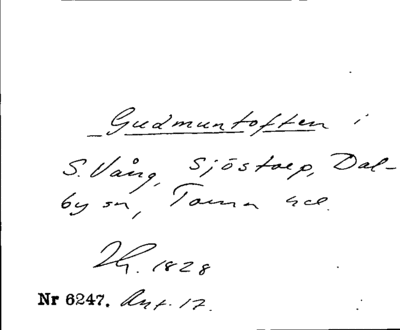 Gudmuntoften i
S. Vång, Sjöstorp, Dal-
by sn, Torna hd.
Lh. 1828
Nr 6247. Ant. 17.